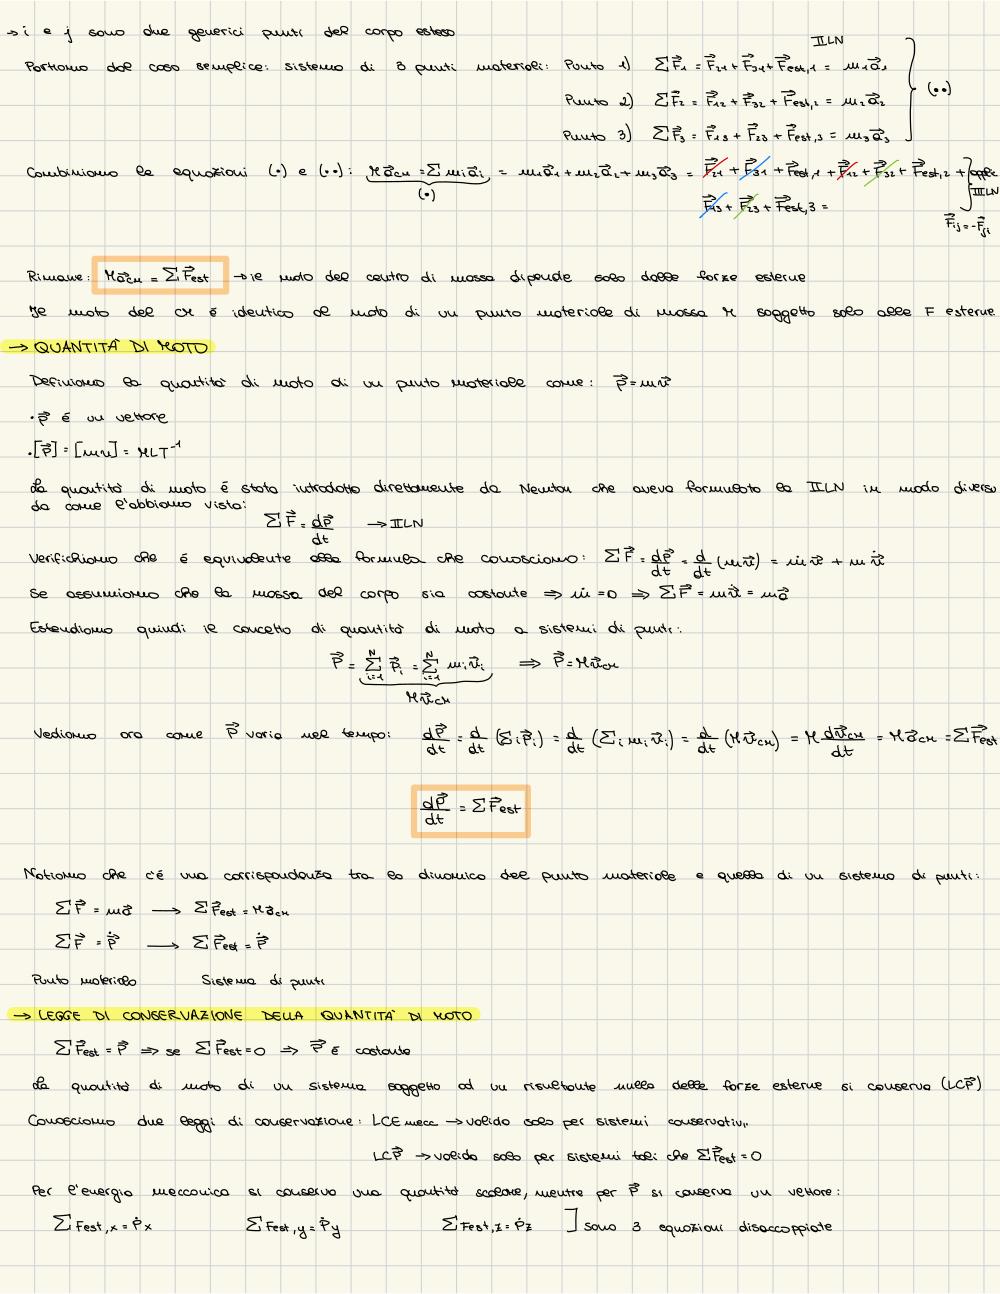 → i e j sono due generici punti del corpo esteso
Partiamo dal caso semplice: sistema di 3 punti materiali: Punto 1) ΣF⃗₁ = F⃗₂₁ + F⃗₃₁ + F⃗est,1 = m₁a⃗₁ IILN
Punto 2) ΣF⃗₂ = F⃗₁₂ + F⃗₃₂ + F⃗est,2 = m₂a⃗₂ (••)
Punto 3) ΣF⃗₃ = F⃗₁₃ + F⃗₂₃ + F⃗est,3 = m₃a⃗₃
Combiniamo le equazioni (•) e (••): Ma⃗CM = Σmᵢa⃗ᵢ = m₁a⃗₁ + m₂a⃗₂ + m₃a⃗₃ = F⃗₂₁ + F⃗₃₁ + F⃗est,1 + F⃗₁₂ + F⃗₃₂ + F⃗est,2 +
(•)
F⃗₁₃ + F⃗₂₃ + F⃗est,3 =
IIILN
F⃗ij = -F⃗ji
Rimane: Ma⃗CM = ΣF⃗est → il moto del centro di massa dipende solo dalle forze esterne
Il moto del CM è identico al moto di un punto materiale di massa M soggetto solo alle F esterne
→ QUANTITÀ DI MOTO
Definiamo la quantità di moto di un punto materiale come: p⃗ = mv⃗
• p⃗ è un vettore
• [p⃗] = [mv] = MLT⁻¹
La quantità di moto è stata introdotta direttamente da Newton che aveva formulato la IILN in modo diverso
da come l'abbiamo vista:
ΣF⃗ = dp⃗/dt → IILN
Verifichiamo che è equivalente alla formula che conosciamo: ΣF⃗ = dp⃗/dt = d/dt (mv⃗) = ṁv⃗ + mv⃗̇
Se assumiamo che la massa del corpo sia costante ⇒ ṁ = 0 ⇒ ΣF⃗ = mv⃗̇ = ma⃗
Estendiamo quindi il concetto di quantità di moto a sistemi di punti:
P⃗ = Σᵢ₌₁ᴺ p⃗ᵢ = Σᵢ₌₁ᴺ mᵢv⃗ᵢ ⇒ P⃗ = Mv⃗CM
Mv⃗CM
Vediamo ora come P⃗ varia nel tempo: dP⃗/dt = d/dt (Σᵢp⃗ᵢ) = d/dt (Σᵢmᵢv⃗ᵢ) = d/dt (Mv⃗CM) = M dv⃗CM/dt = Ma⃗CM = ΣF⃗est
dP⃗/dt = ΣF⃗est
Notiamo che c'è una corrispondenza tra la dinamica del punto materiale e quella di un sistema di punti:
ΣF⃗ = ma⃗ → ΣF⃗est = Ma⃗CM
ΣF⃗ = p⃗̇ → ΣF⃗est = P⃗̇
Punto materiale Sistema di punti
→ LEGGE DI CONSERVAZIONE DELLA QUANTITÀ DI MOTO
ΣF⃗est = P⃗̇ ⇒ se ΣF⃗est = 0 ⇒ P⃗ è costante
La quantità di moto di un sistema soggetto ad un risultante nulla delle forze esterne si conserva (LCP⃗)
Conosciamo due leggi di conservazione: LCE mecc → valido solo per sistemi conservativi
LCP⃗ → valido solo per sistemi tali che ΣF⃗est = 0
Per l'energia meccanica si conserva una quantità scalare, mentre per P⃗ si conserva un vettore:
ΣFest,x = Ṗx ΣFest,y = Ṗy ΣFest,z = Ṗz ] sono 3 equazioni disaccoppiate